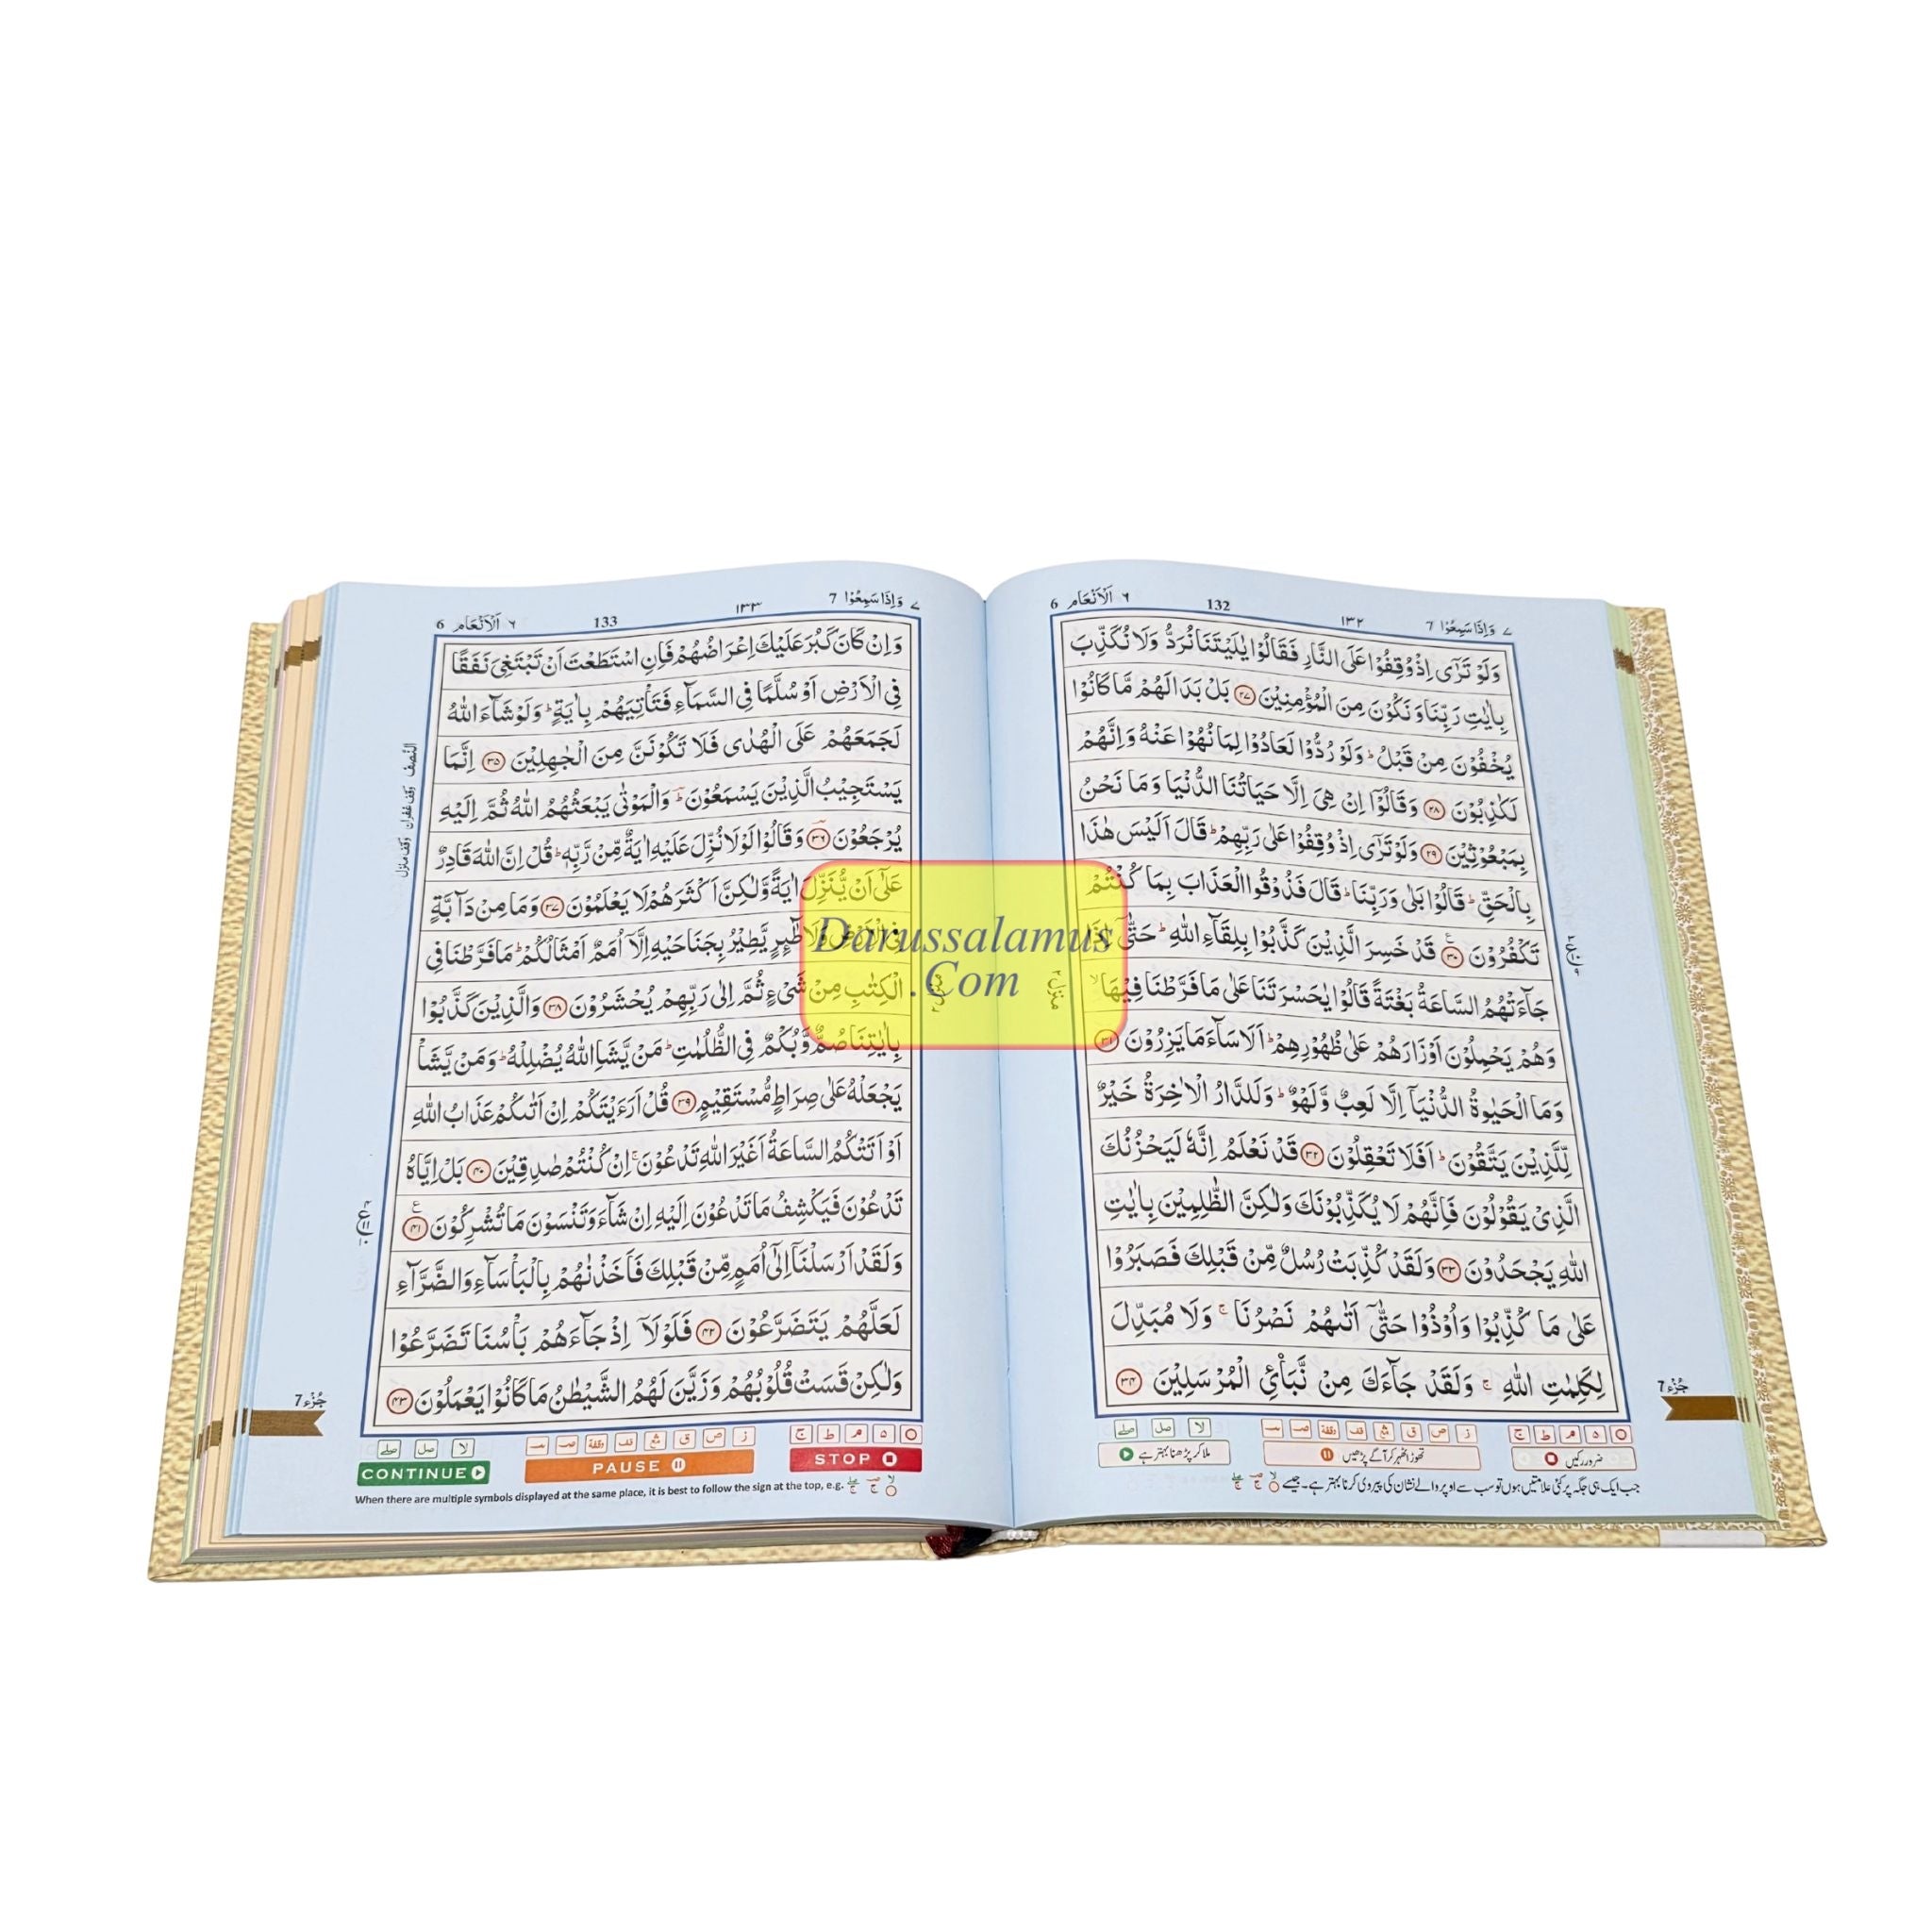 ٦ اَلْاَنْعَام 6
132
١٣٢
٧ وَاِذَا سَمِعُوْا 7
وَلَوْ تَرٰٓى اِذْ وُقِفُوْا عَلَى النَّارِ فَقَالُوْا يٰلَيْتَنَا نُرَدُّ وَلَا نُكَذِّبَ
بِاٰيٰتِ رَبِّنَا وَنَكُوْنَ مِنَ الْمُؤْمِنِيْنَ ٢٧ بَلْ بَدَا لَهُمْ مَّا كَانُوْا
يُخْفُوْنَ مِنْ قَبْلُ ؕ وَلَوْ رُدُّوْا لَعَادُوْا لِمَا نُهُوْا عَنْهُ وَاِنَّهُمْ
لَكٰذِبُوْنَ ٢٨ وَقَالُوْٓا اِنْ هِيَ اِلَّا حَيَاتُنَا الدُّنْيَا وَمَا نَحْنُ
بِمَبْعُوْثِيْنَ ٢٩ وَلَوْ تَرٰٓى اِذْ وُقِفُوْا عَلٰى رَبِّهِمْ ؕ قَالَ اَلَيْسَ هٰذَا
بِالْحَقِّ ؕ قَالُوْا بَلٰى وَرَبِّنَا ؕ قَالَ فَذُوْقُوا الْعَذَابَ بِمَا كُنْتُمْ
تَكْفُرُوْنَ ٣٠ قَدْ خَسِرَ الَّذِيْنَ كَذَّبُوْا بِلِقَآءِ اللّٰهِ ؕ حَتّٰٓى اِذَا
جَآءَتْهُمُ السَّاعَةُ بَغْتَةً قَالُوْا يٰحَسْرَتَنَا عَلٰى مَا فَرَّطْنَا فِيْهَا ۙ
وَهُمْ يَحْمِلُوْنَ اَوْزَارَهُمْ عَلٰى ظُهُوْرِهِمْ ؕ اَلَا سَآءَ مَا يَزِرُوْنَ ٣١
وَمَا الْحَيٰوةُ الدُّنْيَآ اِلَّا لَعِبٌ وَّلَهْوٌ ؕ وَلَلدَّارُ الْاٰخِرَةُ خَيْرٌ
لِّلَّذِيْنَ يَتَّقُوْنَ ؕ اَفَلَا تَعْقِلُوْنَ ٣٢ قَدْ نَعْلَمُ اِنَّهٗ لَيَحْزُنُكَ
الَّذِيْ يَقُوْلُوْنَ فَاِنَّهُمْ لَا يُكَذِّبُوْنَكَ وَلٰكِنَّ الظّٰلِمِيْنَ بِاٰيٰتِ
اللّٰهِ يَجْحَدُوْنَ ٣٣ وَلَقَدْ كُذِّبَتْ رُسُلٌ مِّنْ قَبْلِكَ فَصَبَرُوْا
عَلٰى مَا كُذِّبُوْا وَاُوْذُوْا حَتّٰٓى اَتٰىهُمْ نَصْرُنَا ۚ وَلَا مُبَدِّلَ
لِكَلِمٰتِ اللّٰهِ ۚ وَلَقَدْ جَآءَكَ مِنْ نَّبَاِ۟ى الْمُرْسَلِيْنَ ٣٤
منزل ٢
جُزْء 7
ضرور رکیں
تھوڑا ٹھہر کر آگے پڑھیں
ملا کر پڑھنا بہتر ہے
جب ایک ہی جگہ پر کئی علامتیں ہوں تو سب سے اوپر والے نشان کی پیروی کرنا بہتر ہے۔ جیسے
٦ اَلْاَنْعَام 6
133
١٣٣
٧ وَاِذَا سَمِعُوْا 7
وَاِنْ كَانَ كَبُرَ عَلَيْكَ اِعْرَاضُهُمْ فَاِنِ اسْتَطَعْتَ اَنْ تَبْتَغِيَ نَفَقًا
فِي الْاَرْضِ اَوْ سُلَّمًا فِي السَّمَآءِ فَتَاْتِيَهُمْ بِاٰيَةٍ ؕ وَلَوْ شَآءَ اللّٰهُ
لَجَمَعَهُمْ عَلَى الْهُدٰى فَلَا تَكُوْنَنَّ مِنَ الْجٰهِلِيْنَ ٣٥ اِنَّمَا
يَسْتَجِيْبُ الَّذِيْنَ يَسْمَعُوْنَ ؕ وَالْمَوْتٰى يَبْعَثُهُمُ اللّٰهُ ثُمَّ اِلَيْهِ
يُرْجَعُوْنَ ٣٦ وَقَالُوْا لَوْلَا نُزِّلَ عَلَيْهِ اٰيَةٌ مِّنْ رَّبِّهٖ ؕ قُلْ اِنَّ اللّٰهَ قَادِرٌ
عَلٰٓى اَنْ يُّنَزِّلَ اٰيَةً وَّلٰكِنَّ اَكْثَرَهُمْ لَا يَعْلَمُوْنَ ٣٧ وَمَا مِنْ دَآبَّةٍ
فِي الْاَرْضِ وَلَا طٰٓئِرٍ يَّطِيْرُ بِجَنَاحَيْهِ اِلَّآ اُمَمٌ اَمْثَالُكُمْ ؕ مَا فَرَّطْنَا فِي
الْكِتٰبِ مِنْ شَيْءٍ ثُمَّ اِلٰى رَبِّهِمْ يُحْشَرُوْنَ ٣٨ وَالَّذِيْنَ كَذَّبُوْا
بِاٰيٰتِنَا صُمٌّ وَّبُكْمٌ فِي الظُّلُمٰتِ ؕ مَنْ يَّشَاِ اللّٰهُ يُضْلِلْهُ ؕ وَمَنْ يَّشَاْ
يَجْعَلْهُ عَلٰى صِرَاطٍ مُّسْتَقِيْمٍ ٣٩ قُلْ اَرَءَيْتَكُمْ اِنْ اَتٰىكُمْ عَذَابُ اللّٰهِ
اَوْ اَتَتْكُمُ السَّاعَةُ اَغَيْرَ اللّٰهِ تَدْعُوْنَ ۚ اِنْ كُنْتُمْ صٰدِقِيْنَ ٤٠ بَلْ اِيَّاهُ
تَدْعُوْنَ فَيَكْشِفُ مَا تَدْعُوْنَ اِلَيْهِ اِنْ شَآءَ وَتَنْسَوْنَ مَا تُشْرِكُوْنَ ٤١
وَلَقَدْ اَرْسَلْنَآ اِلٰٓى اُمَمٍ مِّنْ قَبْلِكَ فَاَخَذْنٰهُمْ بِالْبَاْسَآءِ وَالضَّرَّآءِ
لَعَلَّهُمْ يَتَضَرَّعُوْنَ ٤٢ فَلَوْلَآ اِذْ جَآءَهُمْ بَاْسُنَا تَضَرَّعُوْا
وَلٰكِنْ قَسَتْ قُلُوْبُهُمْ وَزَيَّنَ لَهُمُ الشَّيْطٰنُ مَا كَانُوْا يَعْمَلُوْنَ ٤٣
النّصف وقف غفران وقف منزل
جُزْء 7
CONTINUE
PAUSE
STOP
When there are multiple symbols displayed at the same place, it is best to follow the sign at the top, e.g.
Darussalamus
.Com